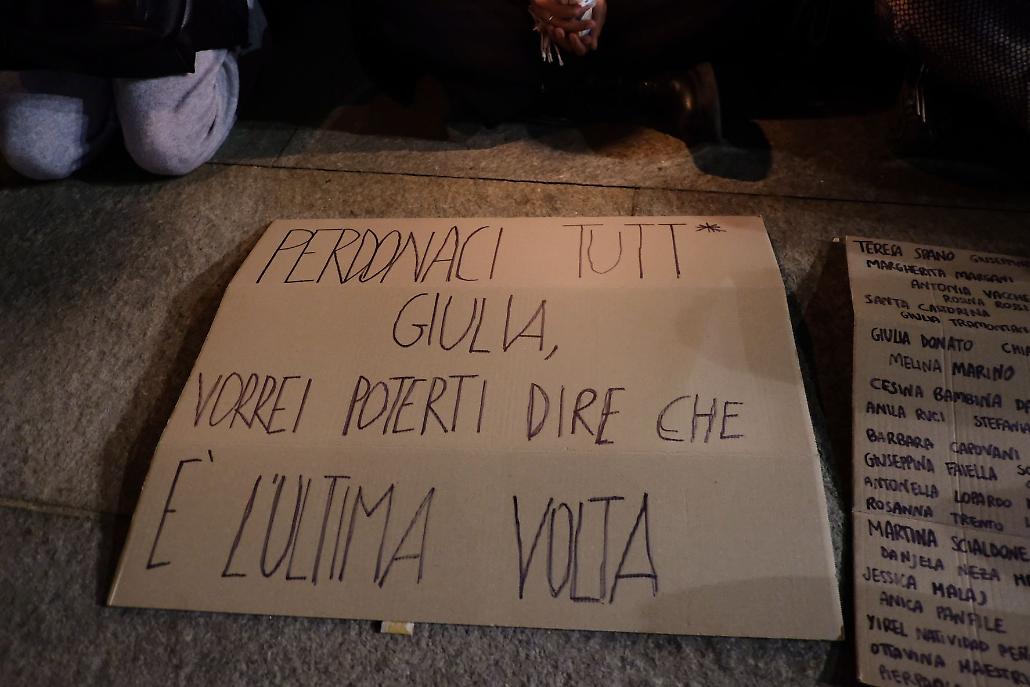 PERDONACI TUTT*
GIULIA,
VORREI POTERTI DIRE CHE
È L'ULTIMA VOLTA
TERESA SPANO
MARGHERITA MARGANI
ANTONIA
ROSINA ROSSI
SANTA CASTORINA
GIULIA
GIULIA DONATO
MELINA MARINO
CESINA BAMBINA
ANILA RUCI
BARBARA CAPOVANI
GIUSEPPINA FAIELLA
ANTONELLA LOPARDO
ROSANNA TRENTO
MARTINA SCIALDONE
DANJELA NEZA
JESSICA MALAJ
ANICA PANFILE
YIREL NATIVIDAD
OTTAVINA MAESTRI